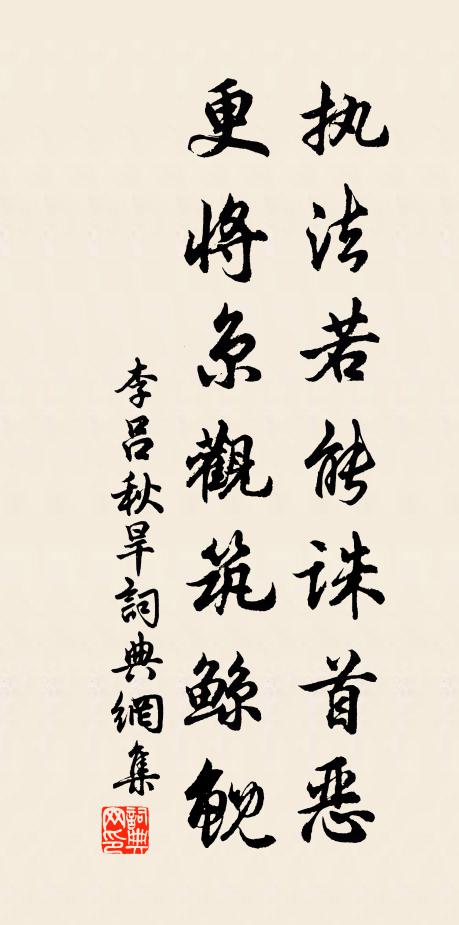 执法若能诛首恶
更将京觀筑鲸鲵
李吕秋旱詞典網集
詞典网印